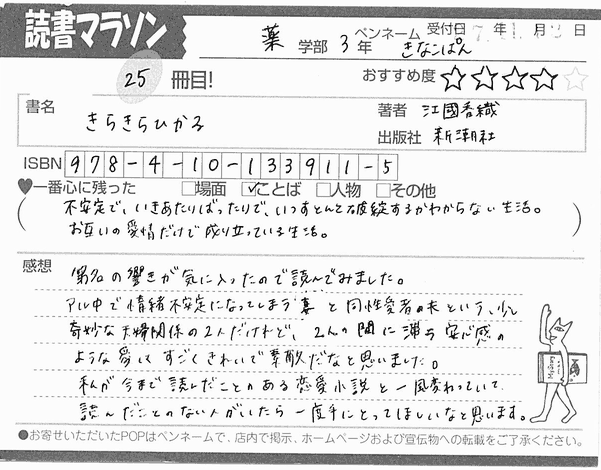 読書マラソン
薬 学部 3年 ペンネーム きなこぱん 受付日 年 月 日
25 冊目! おすすめ度 ★★★★☆
書名 きらきらひかる
著者 江國香織
出版社 新潮社
ISBN 978-4-10-133911-5
♥一番心に残った □場面 ☑ことば □人物 □その他
(不安定で、いきあたりばったりで、いつすとんと破綻するかわからない生活。
お互いの愛情だけで成り立っている生活。)
感想
題名の響きが気に入ったので読んでみました。
アル中で情緒不安定になってしまう妻と同性愛者の夫という、少し
奇妙な夫婦関係の2人だけれど、2人の間に漂う安心感の
ような愛は、すごくきれいで素敵だなと思いました。
私が今まで読んだことのある恋愛小説と一風変わっていて、
読んだことのない人がいたら一度手にとってほしいなと思います。
●お寄せいただいたPOPはペンネームで、店内で掲示、ホームページおよび宣伝物への転載をご了承ください。